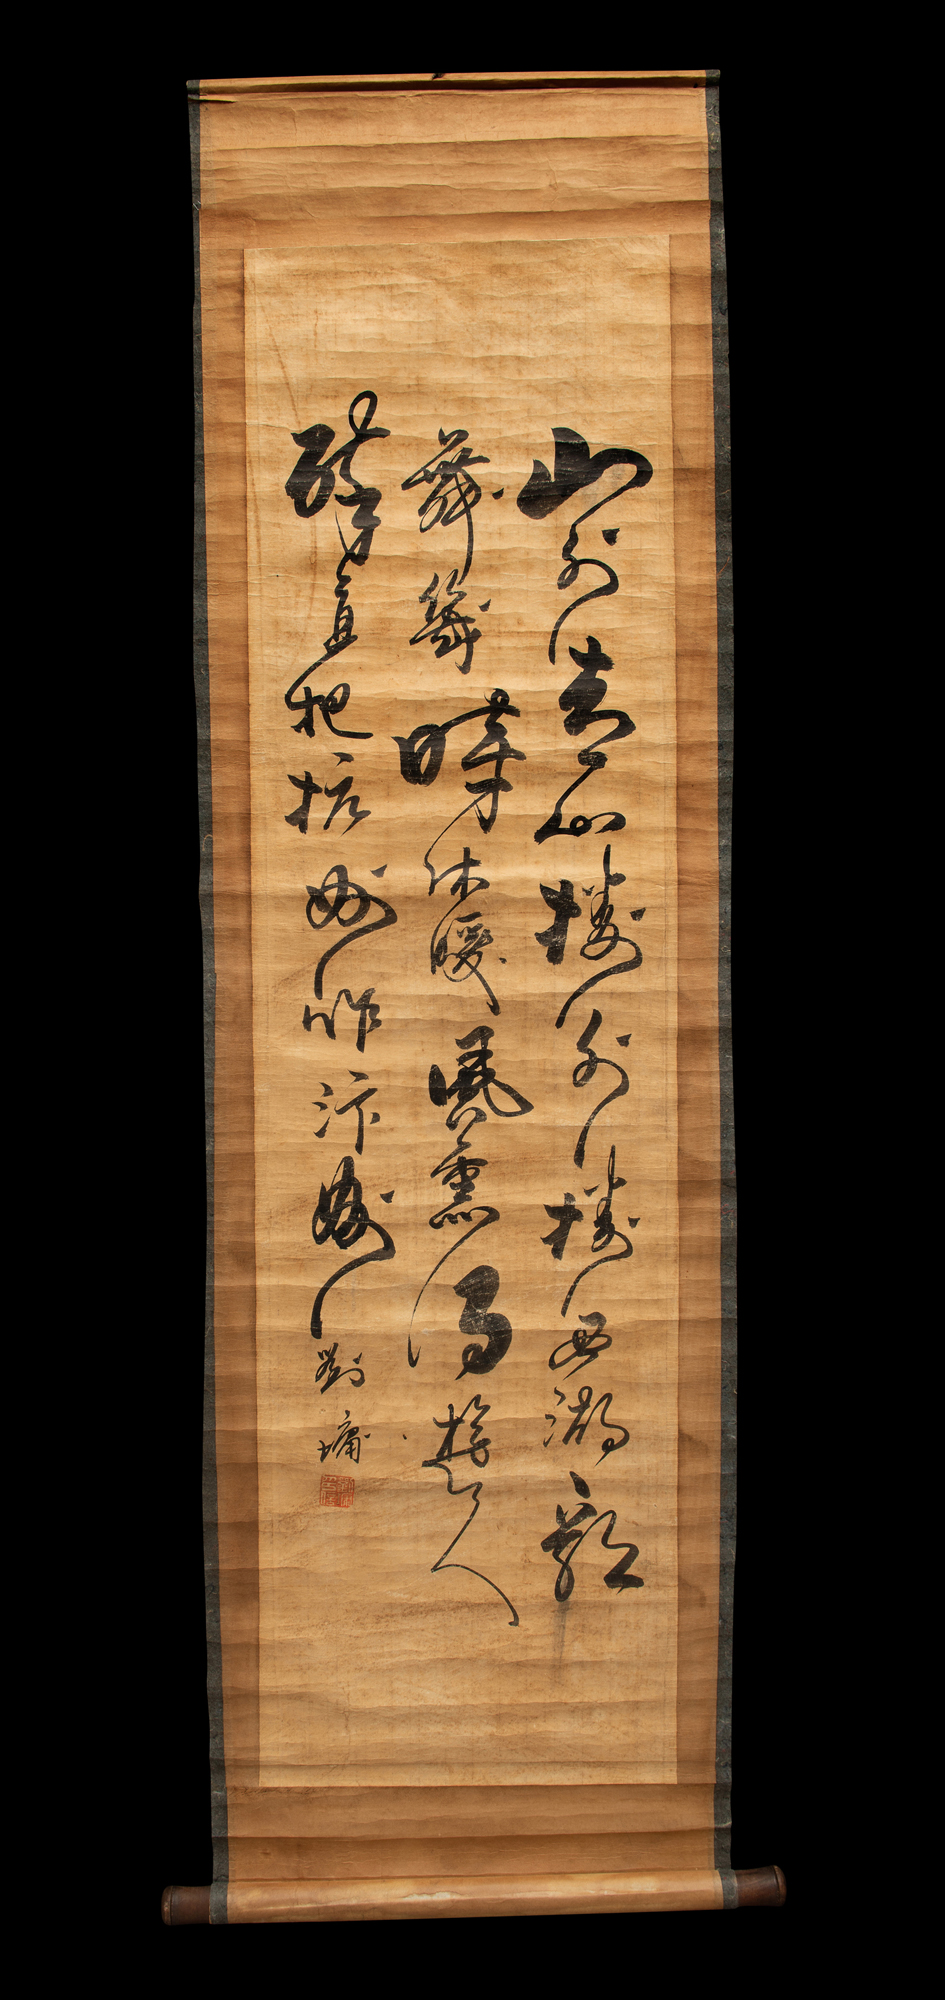 山外青山樓外樓西湖歌
舞幾時休暖風熏得遊人
醉直把杭州作汴州
劉墉